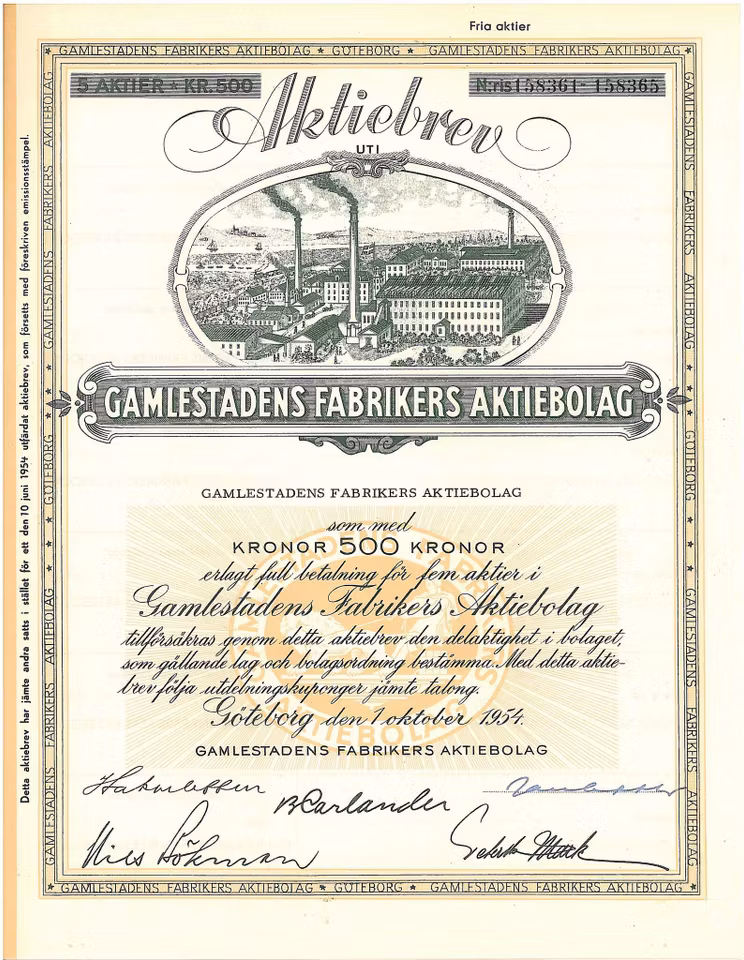 Fria aktier
GAMLESTADENS FABRIKERS AKTIEBOLAG ★ GÖTEBORG ★ GAMLESTADENS FABRIKERS AKTIEBOLAG
5 AKTIER * KR. 500
N:ris 158361 - 158365
Aktiebrev
UTI
GAMLESTADENS FABRIKERS AKTIEBOLAG
GAMLESTADENS FABRIKERS AKTIEBOLAG
som med
KRONOR 500 KRONOR
erlagt full betalning för fem aktier i
Gamlestadens Fabrikers Aktiebolag
tillförsäkras genom detta aktiebrev den delaktighet i bolaget,
som gällande lag och bolagsordning bestämma. Med detta aktie-
brev följa utdelningskuponger jämte talong.
Göteborg den 1 oktober 1954.
GAMLESTADENS FABRIKERS AKTIEBOLAG
B Carlander
Nils Bökman
GAMLESTADENS FABRIKERS AKTIEBOLAG ★ GÖTEBORG ★ GAMLESTADENS FABRIKERS AKTIEBOLAG
GAMLESTADENS FABRIKERS AKTIEBOLAG ★ GÖTEBORG ★ GAMLESTADENS FABRIKERS AKTIEBOLAG
GAMLESTADENS FABRIKERS AKTIEBOLAG ★ ★ ★ GÖTEBORG ★ ★ ★ GAMLESTADENS FABRIKERS AKTIEBOLAG
Detta aktiebrev har jämte andra satts i stället för ett den 10 juni 1954 utfärdat aktiebrev, som försetts med föreskriven emissionsstämpel.